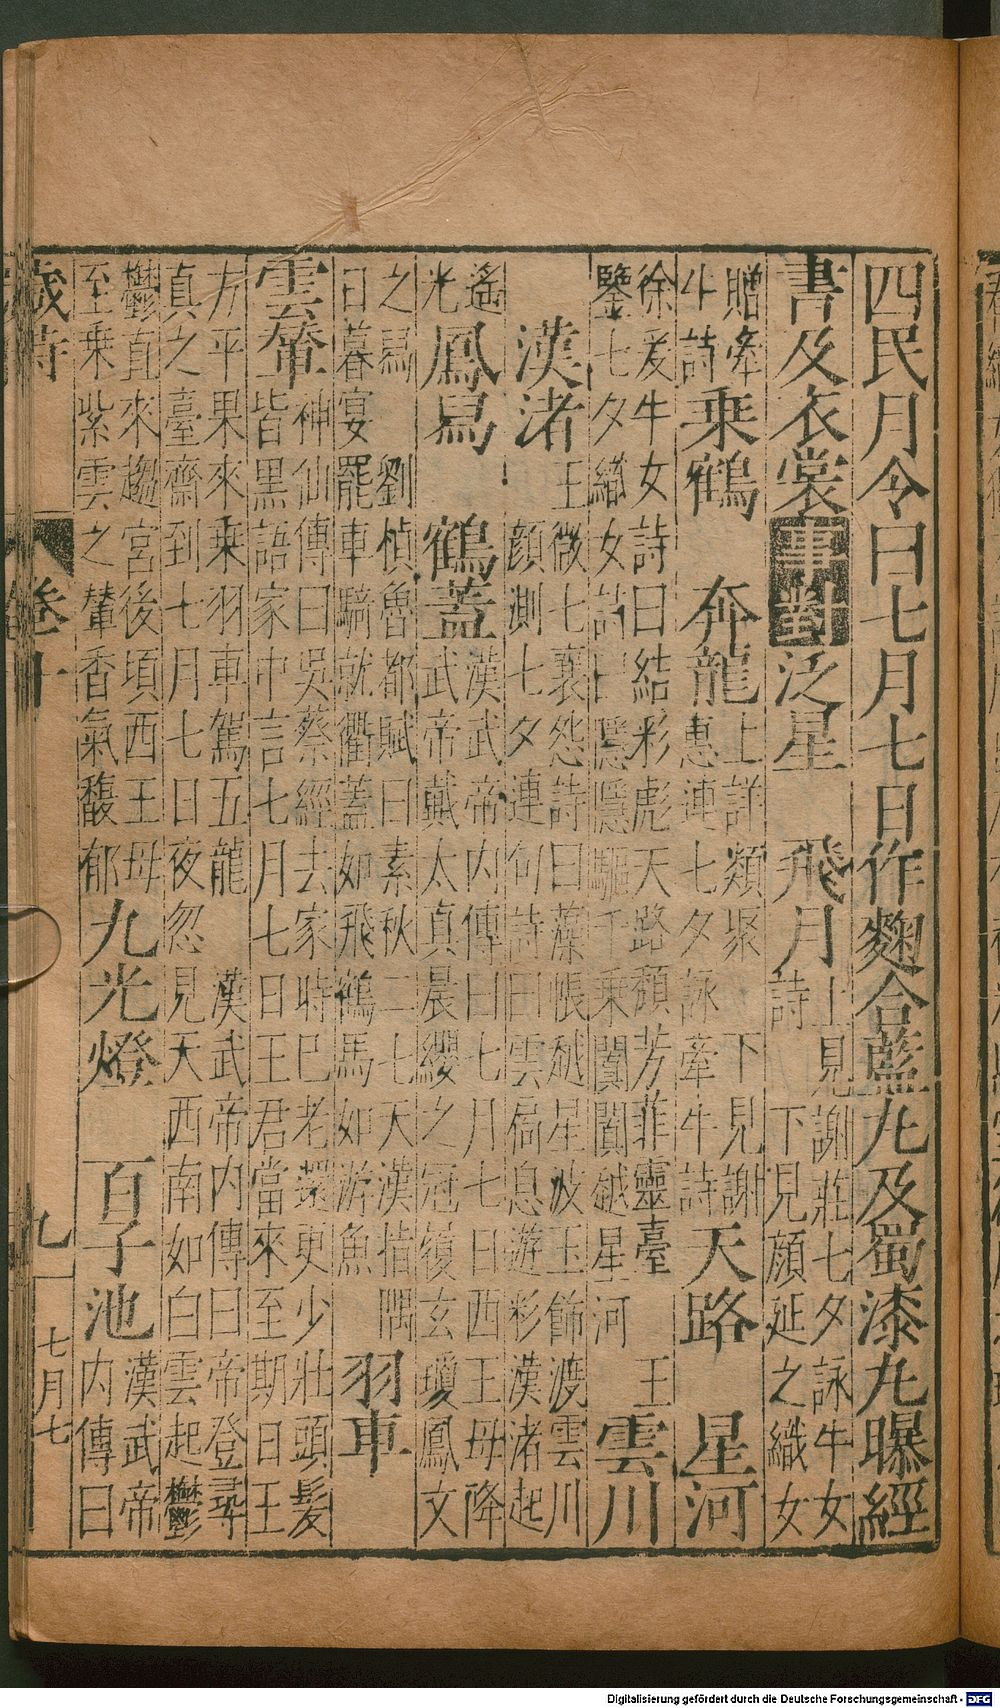 四民月令曰七月七日作麴合藍丸及蜀漆丸曝經
書及衣裳事對泛星　飛月上見謝莊七夕詠牛女詩　下見顔延之織女
贈牽牛詩乗鶴　奔龍上詳類聚　下見謝惠連七夕詠牽牛詩天路　星河
徐爰牛女詩曰結彩彪天路頹芳菲靈臺　王鑒七夕織女詩曰隱隱驅千乗闐闐越星河雲川
漢渚王微七襄怨詩曰藻帳越星波玉飾渡雲川　顔測七夕連句詩曰雲扃息遊彩漢渚起
遙光鳳舄　鶴蓋漢武帝內傳曰七月七日西王母降武帝戴太真晨纓之冠履玄瓊鳳文
之舄　劉楨魯都賦曰素秋二七天漢指隅日暮宴罷車騎就衢蓋如飛鶴馬如游魚　羽車
雲軿神仙傳曰吳蔡經去家時巳老還更少壯頭髪皆黒語家中言七月七日王君當來至期日王
方平果來乗羽車駕五龍　漢武帝內傳曰帝登尋真之臺齋到七月七日夜忽見天西南如白雲起鬱
鬱直來趨宮後頃西王母至乗紫雲之輦香氣馥郁九光燈　百子池漢武帝內傳曰
歲時　卷十　九　七月七
Digitalisierung gefördert durch die Deutsche Forschungsgemeinschaft - DFG